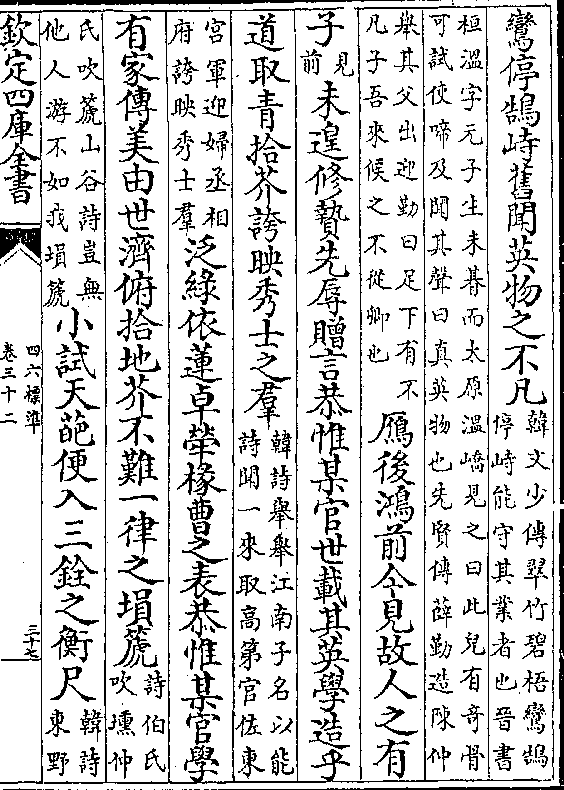 鸞停鵠峙舊聞英物之不凡
韓文少傳翠竹碧梧鸞鵠
停峙能守其業者也晉書
桓溫字元子生未朞而太原溫嶠見之曰此兒有奇骨
可試使啼及聞其聲曰真英物也先賢傳薛勤造陳仲
舉其父出迎勤曰足下有不
凡子吾來候之不從卿也
鴈後鴻前今見故人之有
子
見
前
未遑修贄先辱贈言恭惟某官世載其英學造乎
道取青拾芥誇映秀士之羣
韓詩舉舉江南子名以能
詩聞一來取高第官佐東
宮軍迎婦丞相
府誇映秀士羣
泛綠依蓮卓犖椽曹之表恭惟某官學
有家傳美由世濟俯拾地芥不難一律之塤篪
詩伯氏
吹壎仲
氏吹篪山谷詩豈無
他人游不如我塤篪
小試天葩便入三銓之衡尺
韓詩
東野
欽定四庫全書
四六標準
卷三十二
三十七